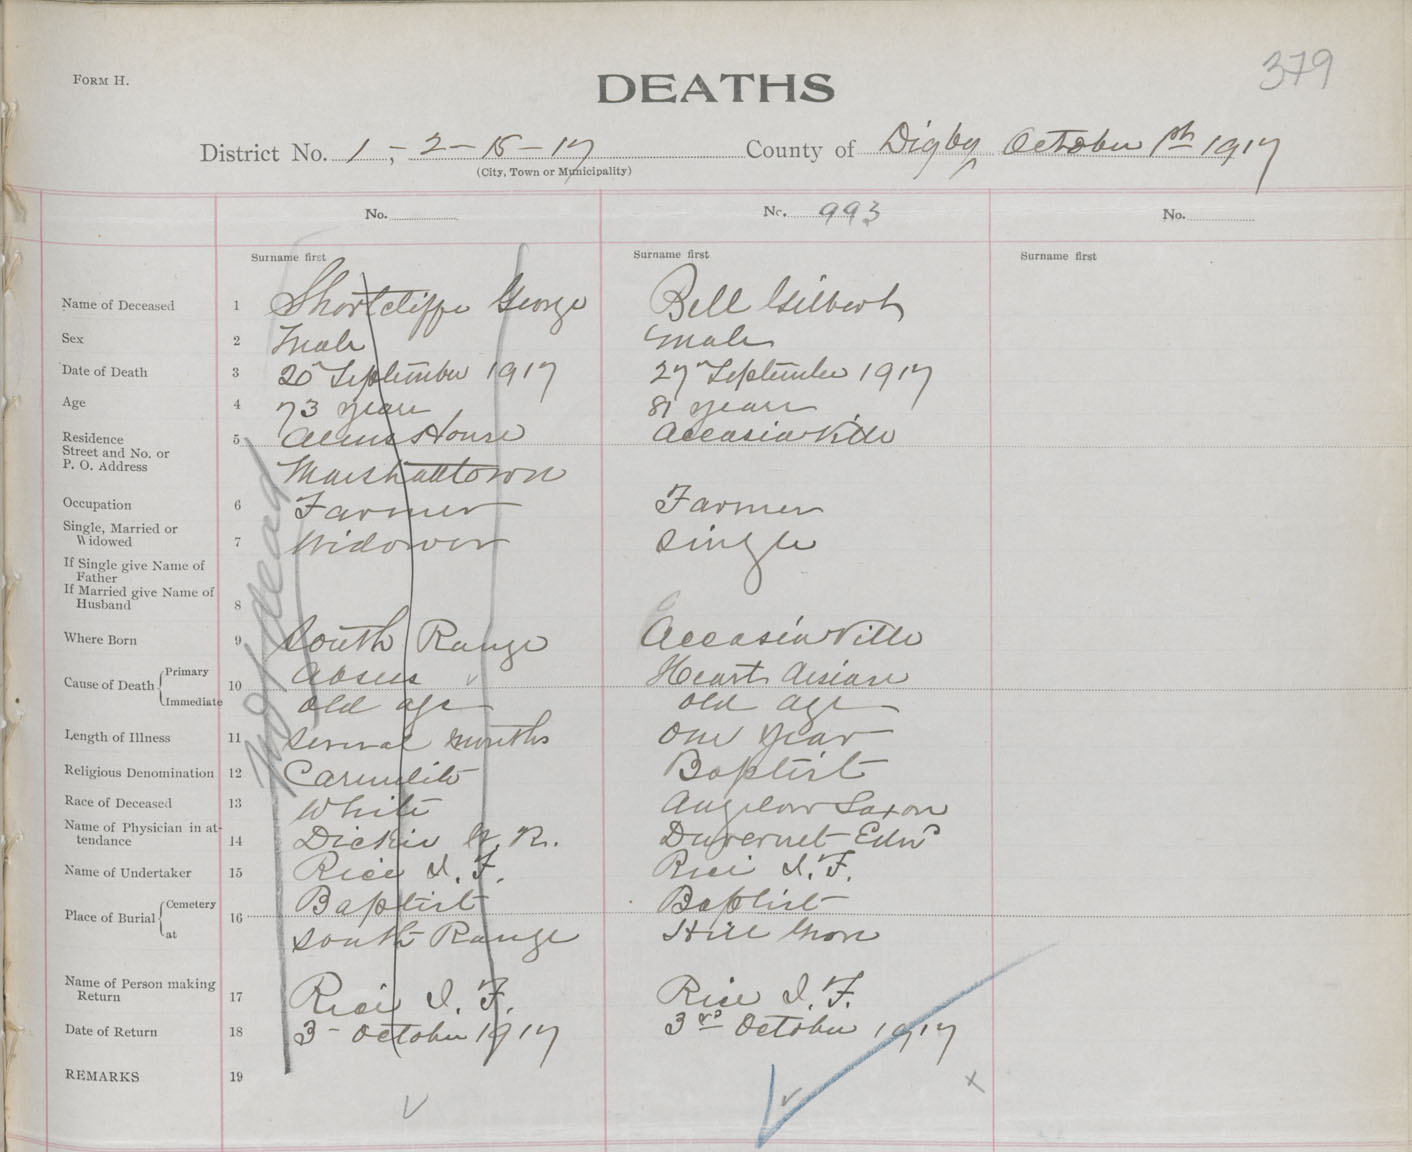 379
FORM H.
DEATHS
District No. 1, - 2 - 15 - 17 County of Digby October 1st 1917
(City, Town or Municipality)
No. No. 993 No.
Surname first Surname first Surname first
Name of Deceased 1 Shortcliffe George Bell Gilbert
Sex 2 Male Male
Date of Death 3 20 September 1917 27 September 1917
Age 4 73 years 81 years
Residence Street and No. or P. O. Address 5 Alms House Accasiaville
Marshalltown
Occupation 6 Farmer Farmer
Single, Married or Widowed 7 Widower Single
If Single give Name of Father
If Married give Name of Husband 8
Where Born 9 South Range Accasiaville
Cause of Death Primary 10 Abses Heart disease
Immediate old age old age
Length of Illness 11 several months one year
Religious Denomination 12 Baptist
Race of Deceased 13 White Anglow Saxon
Name of Physician in attendance 14 Dickie W. R. Duvernet Edw
Name of Undertaker 15 Rice I. F. Rice I. F.
Place of Burial Cemetery 16 Baptist Baptist
at South Range Hill Grove
Name of Person making Return 17 Rice I. F. Rice I. F.
Date of Return 18 3 - October 1917 3rd October 1917
REMARKS 19
Not dead